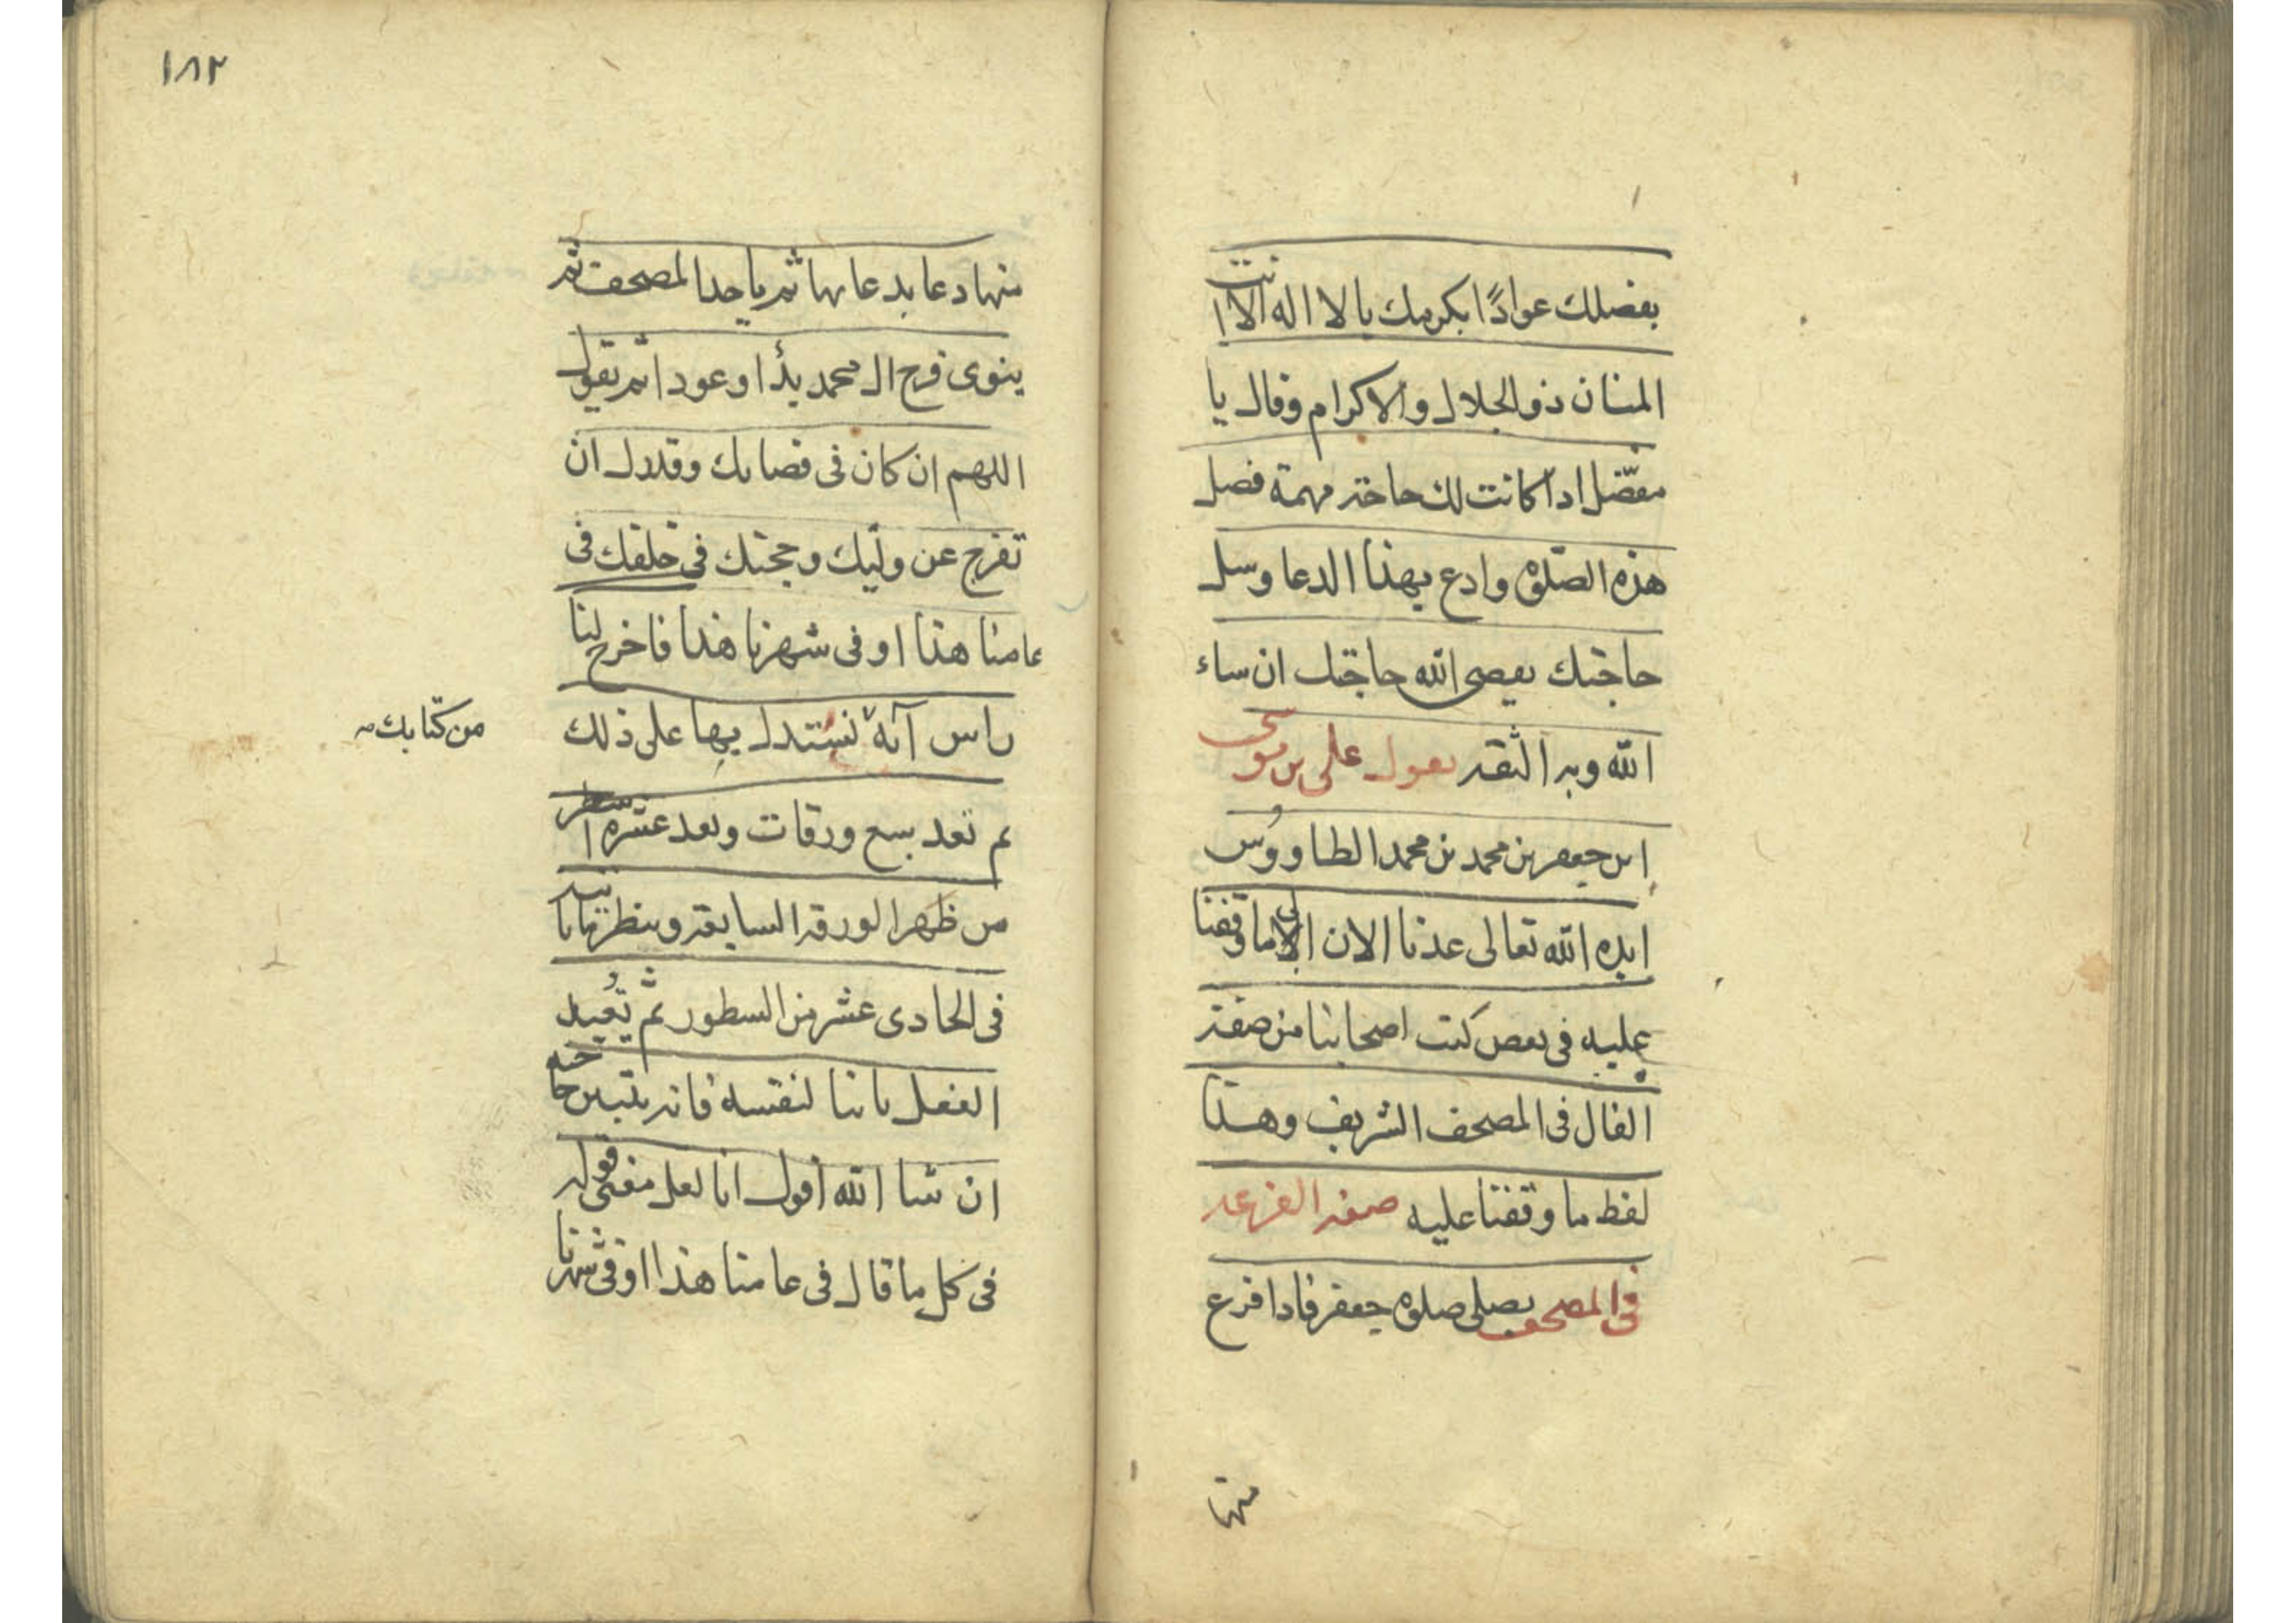 بفضلك عوادًا بكرمك يا لا اله الا انت
المنان ذو الجلال والاكرام وقال يا
مفضّل اذا كانت لك حاجة مهمة فصل
هذه الصّلوة وادع بهذا الدعا وسل
حاجتك يقضى الله حاجتك ان ساء
الله وبه الثقة يقول على بن موسى
ابن جعفر بن محمد بن محمد الطاووُس
ايده الله تعالى عدنا الان الى ما وقفنا
عليه في بعض كتب اصحابنا من صفة
الفال فى المصحف الشريف وهذا
لفظ ما وقفنا عليه صفة القرعة
فى المصحف يصلى صلوة جعفر فاذا فرغ
منها
١٨٢
منها دعا بدعايها ثم ياخذ المصحف ثم
ينوى فرج ال محمد بدًا وعودا ثم يقول
اللهم ان كان فى قضائك وقدرك ان
تفرج عن وليّك وحجتك فى خلقك فى
عامنا هذا او فى شهرنا هذا فاخرج لنا
راس آية نستدل بها على ذلك
من كتابك
ثم تعد سبع ورقات وتعد عشرة اسطر
من ظهر الورقة السابعة وينظر ما ياتيه
فى الحادى عشر من السطور ثم يُعيد
الفعل ثانيا لنفسه فانه يتبين حاجته
ان شا الله اقول انا لعل معنى قوله
فى كل ما قال فى عامنا هذا او فى شهرنا